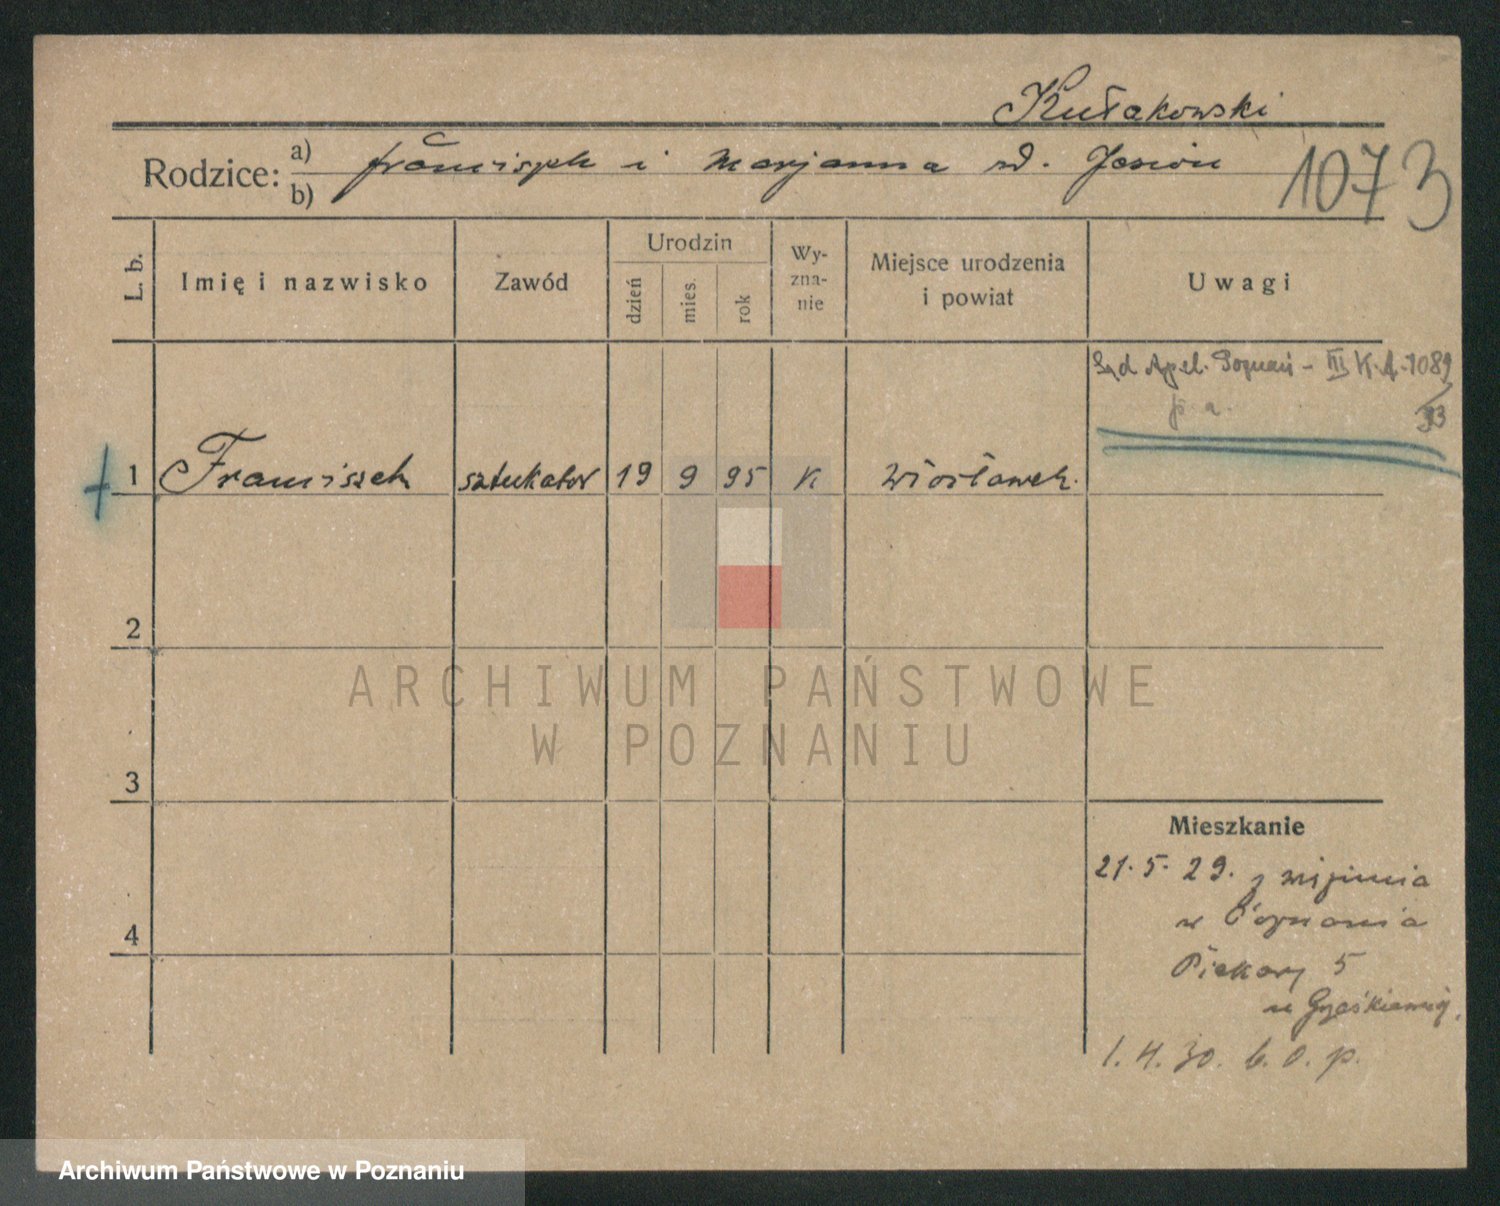 Kułakowski
Rodzice: a) Franciszek i Marjanna zd.
b)
1073
L. b.
Imię i nazwisko
Zawód
Urodzin
dzień
mies.
rok
Wy-
zna-
nie
Miejsce urodzenia
i powiat
Uwagi
Sąd Apel. Poznań - III K.A. 1089
33
1 Franciszek sztukator 19 9 95 K Włosławek.
2
3
4
Mieszkanie
21.5.29. z
w Poznania
Piekary 5
1.4.30. b.o.p.
ARCHIWUM PAŃSTWOWE
W POZNANIU
Archiwum Państwowe w Poznaniu